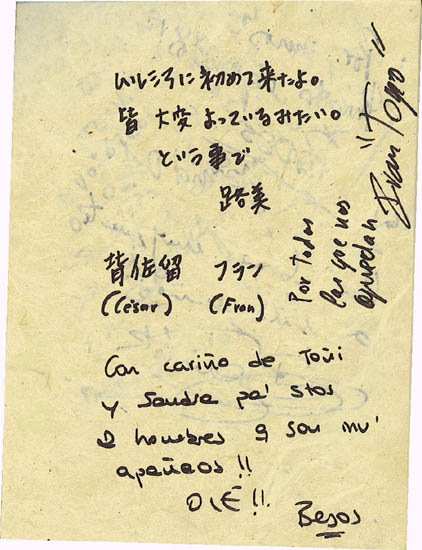 いしころに初めて来たよ。
皆 大変 よっているみたい。
という事で
路美
皆佐留 フラン
(César) (Fran)
Por todas
las que nos
ayudan
"Toyo"
Con cariño de Toñi
y Sandra pa' stos
2 hombres q son mu'
apañaos!!
OLÉ!!
Besos